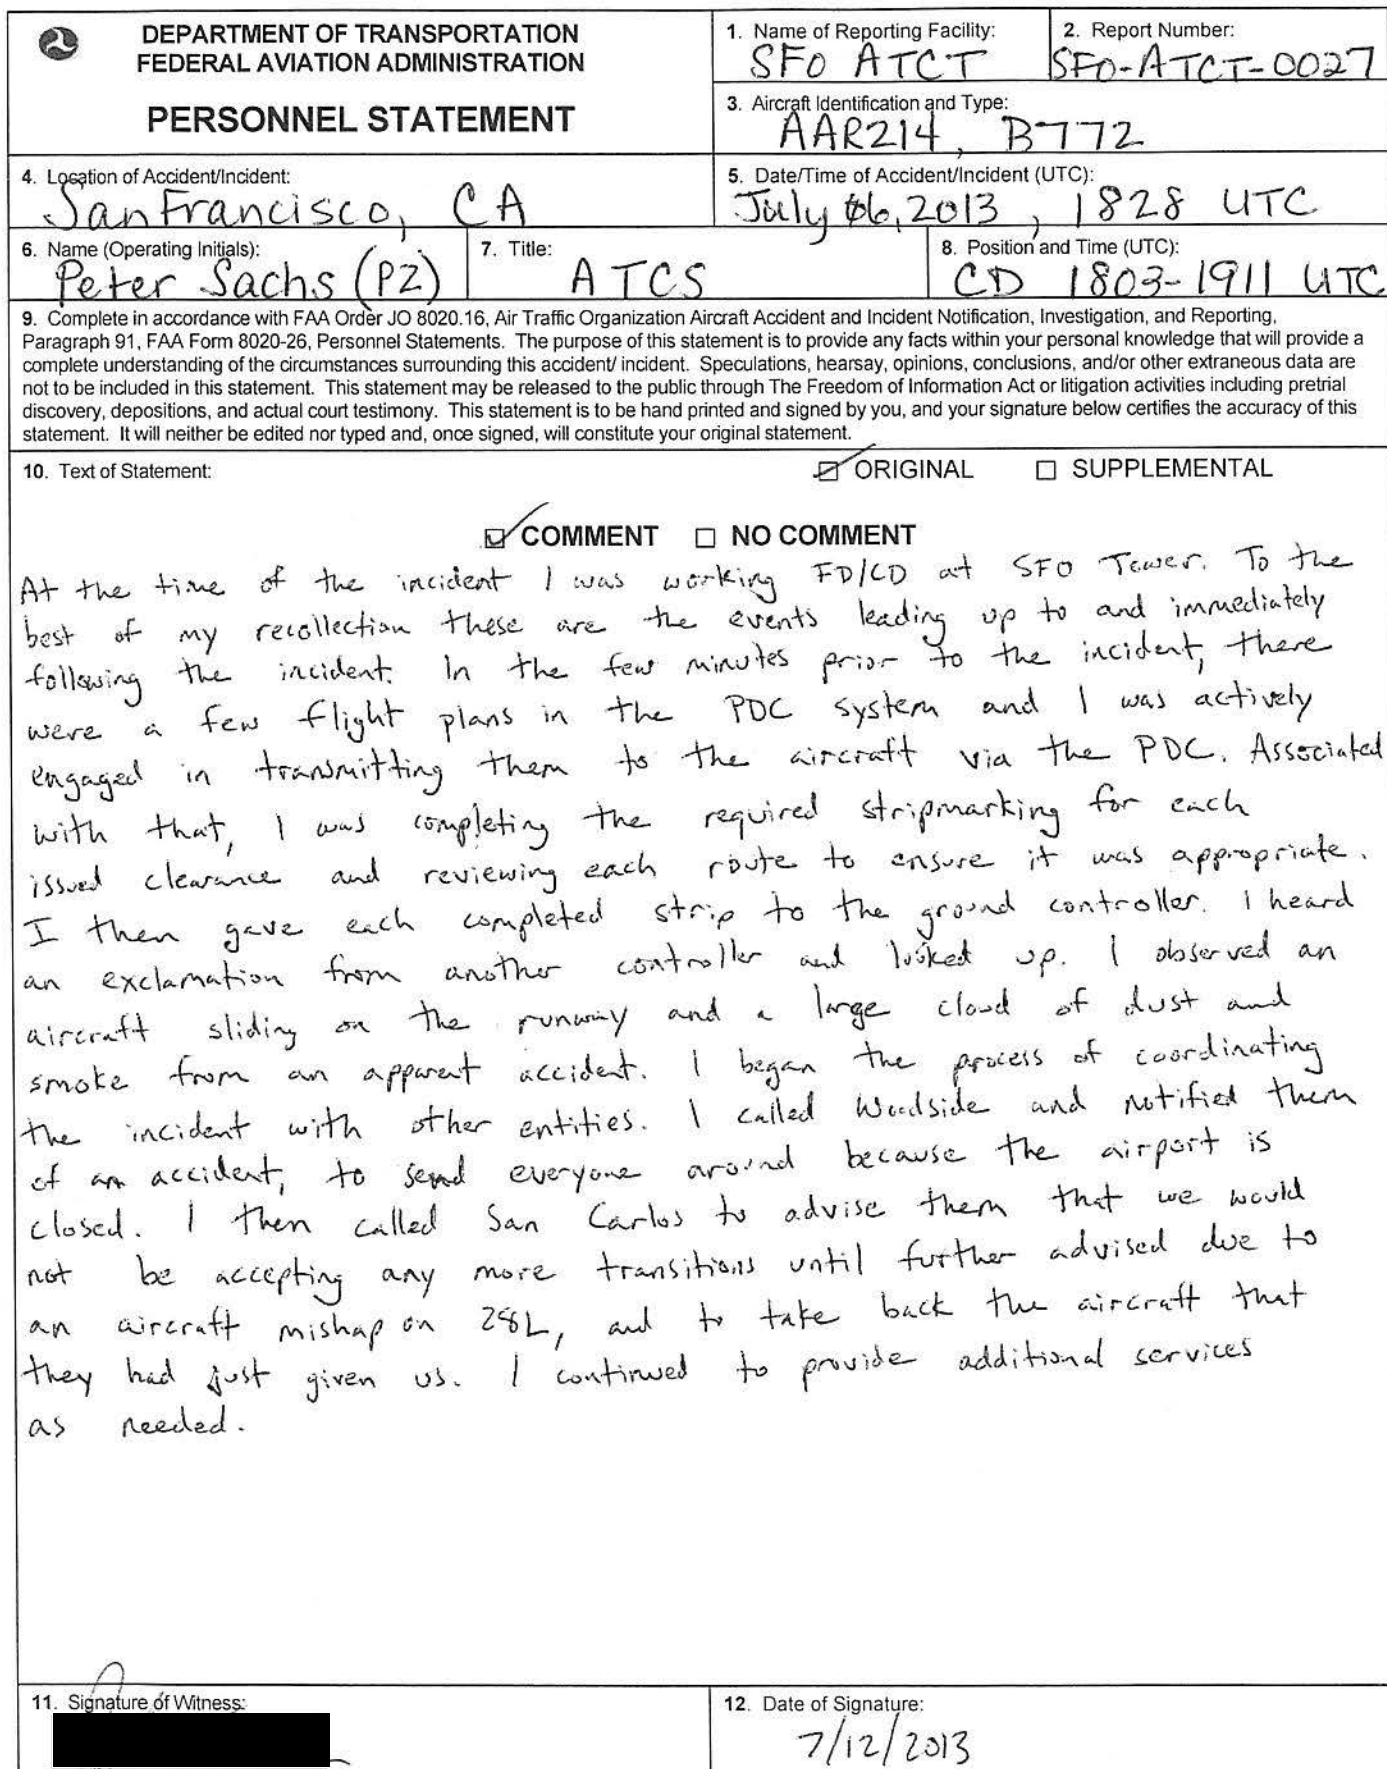 DEPARTMENT OF TRANSPORTATION
FEDERAL AVIATION ADMINISTRATION
PERSONNEL STATEMENT
1. Name of Reporting Facility:
SFO ATCT
2. Report Number:
SFO-ATCT-0027
3. Aircraft Identification and Type:
AAR214, B772
4. Location of Accident/Incident:
San Francisco, CA
5. Date/Time of Accident/Incident (UTC):
July 06, 2013, 1828 UTC
6. Name (Operating Initials):
Peter Sachs (PZ)
7. Title:
ATCS
8. Position and Time (UTC):
CD 1803-1911 UTC
9. Complete in accordance with FAA Order JO 8020.16, Air Traffic Organization Aircraft Accident and Incident Notification, Investigation, and Reporting,
Paragraph 91, FAA Form 8020-26, Personnel Statements. The purpose of this statement is to provide any facts within your personal knowledge that will provide a
complete understanding of the circumstances surrounding this accident/ incident. Speculations, hearsay, opinions, conclusions, and/or other extraneous data are
not to be included in this statement. This statement may be released to the public through The Freedom of Information Act or litigation activities including pretrial
discovery, depositions, and actual court testimony. This statement is to be hand printed and signed by you, and your signature below certifies the accuracy of this
statement. It will neither be edited nor typed and, once signed, will constitute your original statement.
10. Text of Statement:
ORIGINAL SUPPLEMENTAL
COMMENT NO COMMENT
At the time of the incident I was working FD/CD at SFO Tower. To the
best of my recollection these are the events leading up to and immediately
following the incident. In the few minutes prior to the incident, there
were a few flight plans in the PDC system and I was actively
engaged in transmitting them to the aircraft via the PDC. Associated
with that, I was completing the required stripmarking for each
issued clearance and reviewing each route to ensure it was appropriate.
I then gave each completed strip to the ground controller. I heard
an exclamation from another controller and looked up. I observed an
aircraft sliding on the runway and a large cloud of dust and
smoke from an apparent accident. I began the process of coordinating
the incident with other entities. I called Woodside and notified them
of an accident, to send everyone around because the airport is
closed. I then called San Carlos to advise them that we would
not be accepting any more transitions until further advised due to
an aircraft mishap on 28L, and to take back the aircraft that
they had just given us. I continued to provide additional services
as needed.
11. Signature of Witness:
12. Date of Signature:
7/12/2013